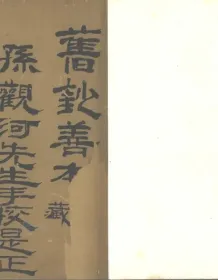 舊鈔善本 藏
孫觀河先生手校是正